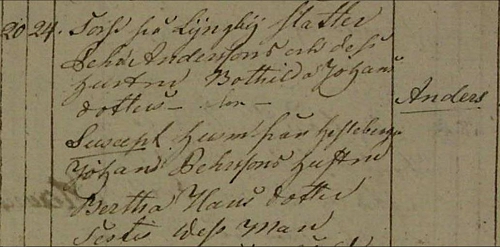 20 24. Torp på Lyngby slatter
Pehr Andersons och dess
hustru Bothilda Johans
dotters – son –
Anders
Suscept hustru från Hesleberga
Johan Pehrsons hustru
Bertha Hans dotter
Testis dess man